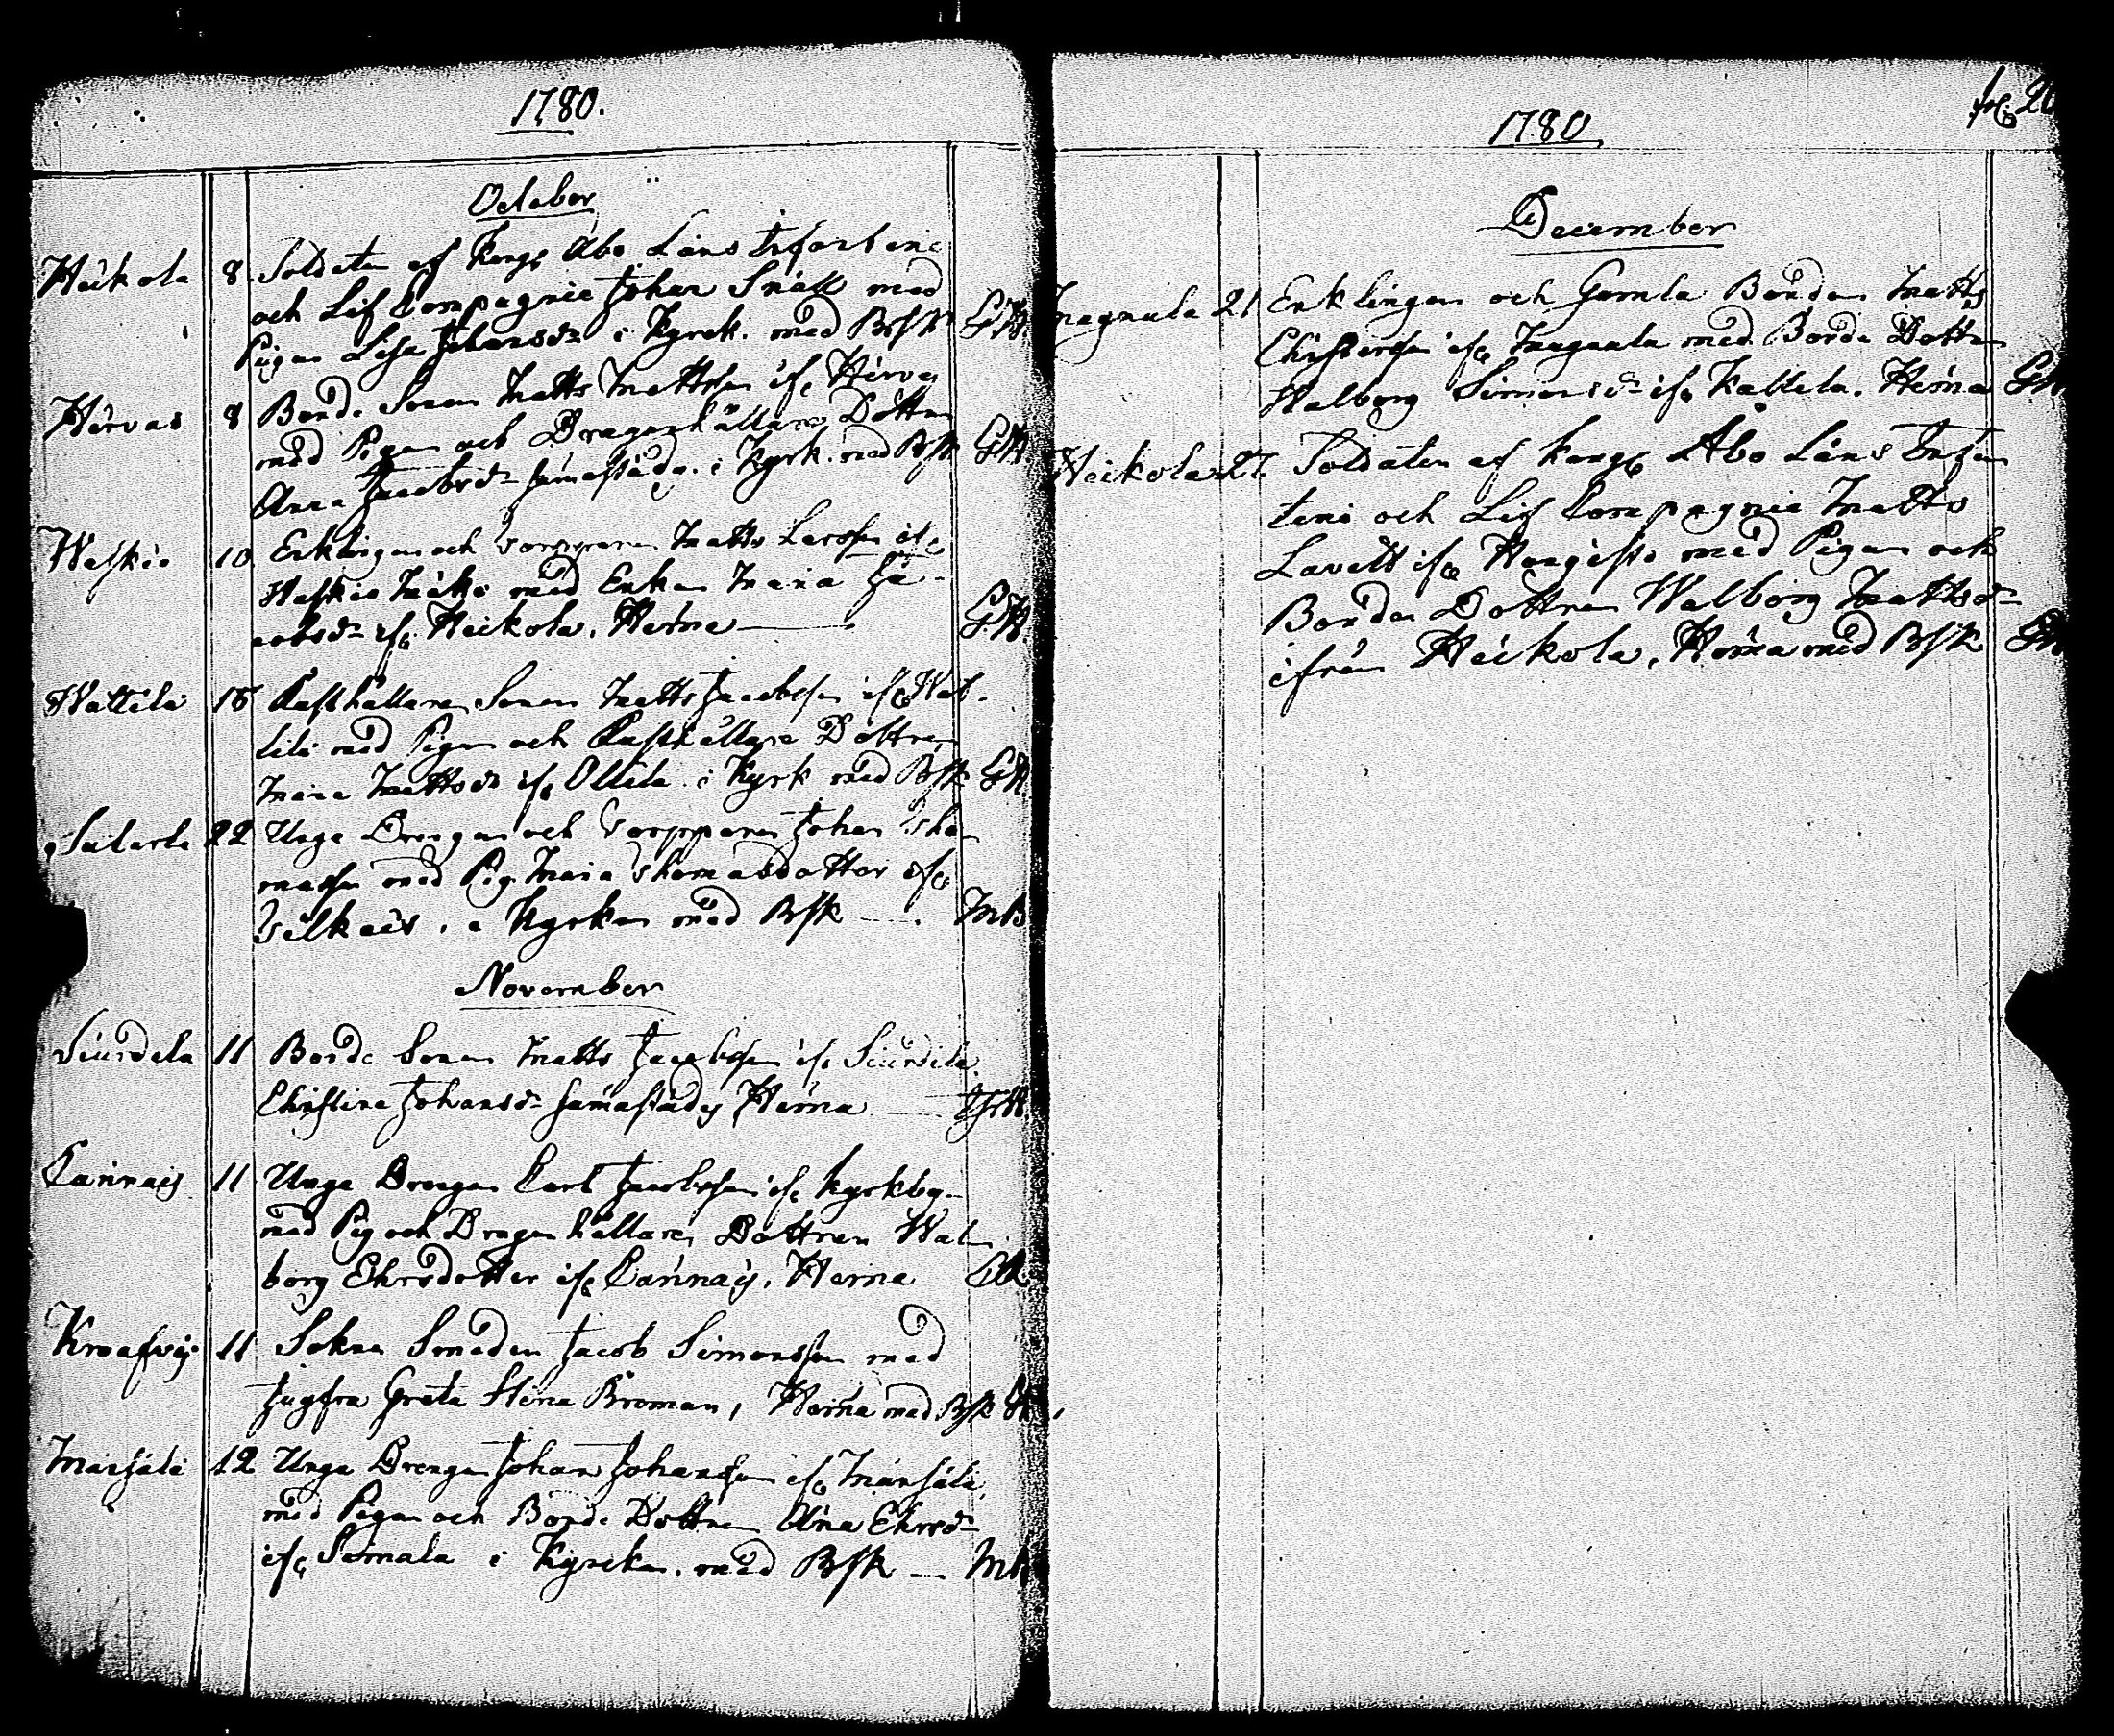 1780.
October
Heikola 8. Soldaten af Kongl Åbo Läns Infanterie
och Lif Compagnie Johan Snäll med
Pigan Lisa Johansdr i Kyrck. med BrSk G.H.
Hirvas 8 Bonde Sonen Matts Mattsson ifr Hirvas
med Pigan och Dragonhållare Dottren
Anna Jacobsdr samastädes. i Kyrk. med BrSk G.H.
Waskio 10. Enklingen och Matts Larsson ifr
Waskio Mäki med Enkan Maria Ja-
cobsdr ifr Heikola. Hema G.H.
Wattila 15 Rusthållaren Sonen Matts Jacobsson ifr Wat-
tila med Pigan och Rusthållare Dottren
Maria Mattsdr ifr Ollila. i Kyrk med BrSk G.H.
22 Unge Drengen och Johan Tho-
masson med Pig. Maria Thomasdotter ifr
i Kyrkan med BrSk M.B
November
Siurdila 11 Bonde Sonen Matts Jacobsson ifr Siurdila.
Christina Johansdr samastädes Hema
11 Unge Drengen Carl Jacobsson ifr Kyrkby
med Pig och Dragonhållaren Dottren Wal-
borg Ehrsdotter ifr Hema
11 Sokne Smeden Jacob Simonsson med
Jugfru Greta Stina Broman, Hema med BrSk
12 Unge Drengen Johan Johansson ifr
med Pigan och Bonde Dottren Anna Ehrsdr
ifr Simala i Kyrckan. med BrSk
fol. 20
1780
December
Magnula 21 Enklingen och Gamla Bonden Matts
Christersson ifr Magnula med Bonde Dottren
Walborg Simonsdr ifr Kallela. Hema G.H
Heikola 27. Soldaten af Kongl Åbo Läns Infan
terie och Lif Compagnie Matts
Lavett ifr med Pigan och
Bonden Dottren Walborg Mattsdr
ifrån Heikola, Hema med BrSk G.H